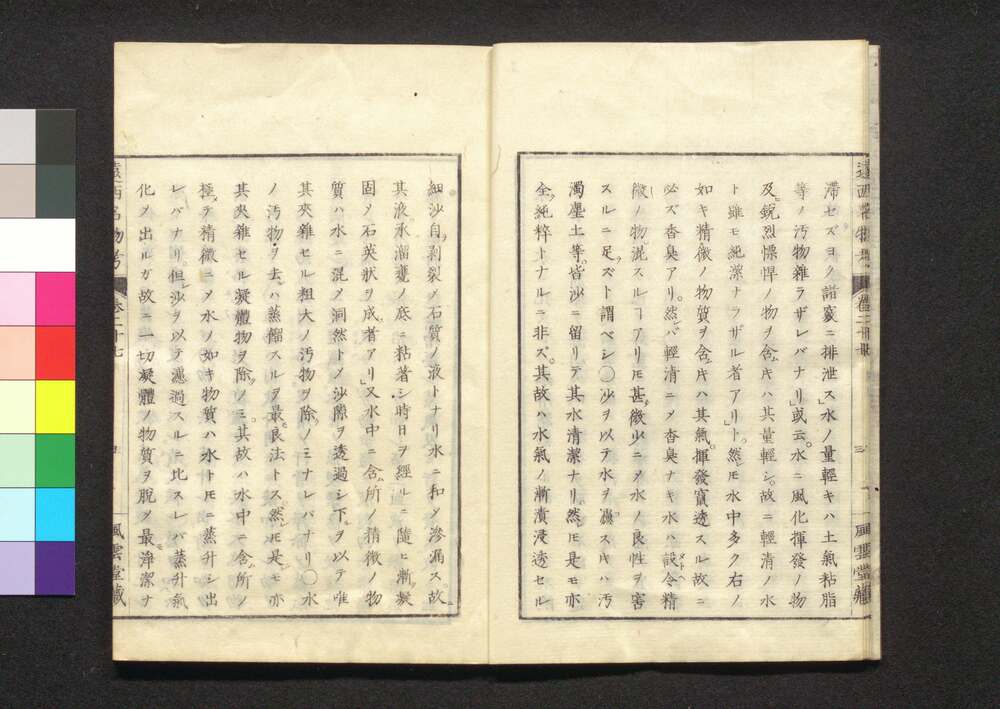 滞セズヨク諸竅ニ排泄ス」水ノ量輕キハ土氣粘脂
等ノ汚物雜ラザレバナリ」或云水ニ風化揮發ノ物
及銳烈慓悍ノ物ヲ含ムキハ其量輕シ故ニ輕清ノ水
ト雖モ純潔ナラザル者アリト然レモ水中多ク右ノ
如キ精微ノ物質ヲ含ムキハ其氣揮發竄透スル故ニ
必ズ香臭アリ然レバ輕清ニメ香臭ナキ水ハ設令精
微ノ物混スルヿアリモ甚微少ニメ水ノ良性ヲ害
スルニ足ラズト謂ベシ〇沙ヲ以テ水ヲ漉スキハ汚
濁塵土等皆沙ニ留リテ其水清潔ナリ然レモ是モ亦
全ク純粹トナルニ非ズ其故ハ水氣ノ漸漬浸透セル
細沙自ラ剥裂メ石質ノ液トナリ水ニ和メ滲漏ス故
其液水溜甕ノ底ニ粘著シ時日ヲ經ルニ隨ヒ漸凝
固メ石英狀ヲ成者アリ」又水中ニ含所ノ精微ノ物
質ハ水ニ混メ洞然トメ沙隙ヲ透過シ下ル以テ唯
其夾雜セル粗大ノ汚物ヲ除クノミナレバナリ〇水
ノ汚物ヲ去ルハ蒸餾スルヲ最良法トス然レモ是モ亦
其夾雜セル凝體物ヲ除クノミ其故ハ水中ニ含所ノ
極テ精微ニメ水ノ如キ物質ハ水トモニ蒸升シ出
レバナリ但沙ヲ以テ濾過スルニ比スレバ蒸升氣
化メ出ルガ故ニ一切凝體ノ物質ヲ脫メ最淨潔ナ
風雲堂藏